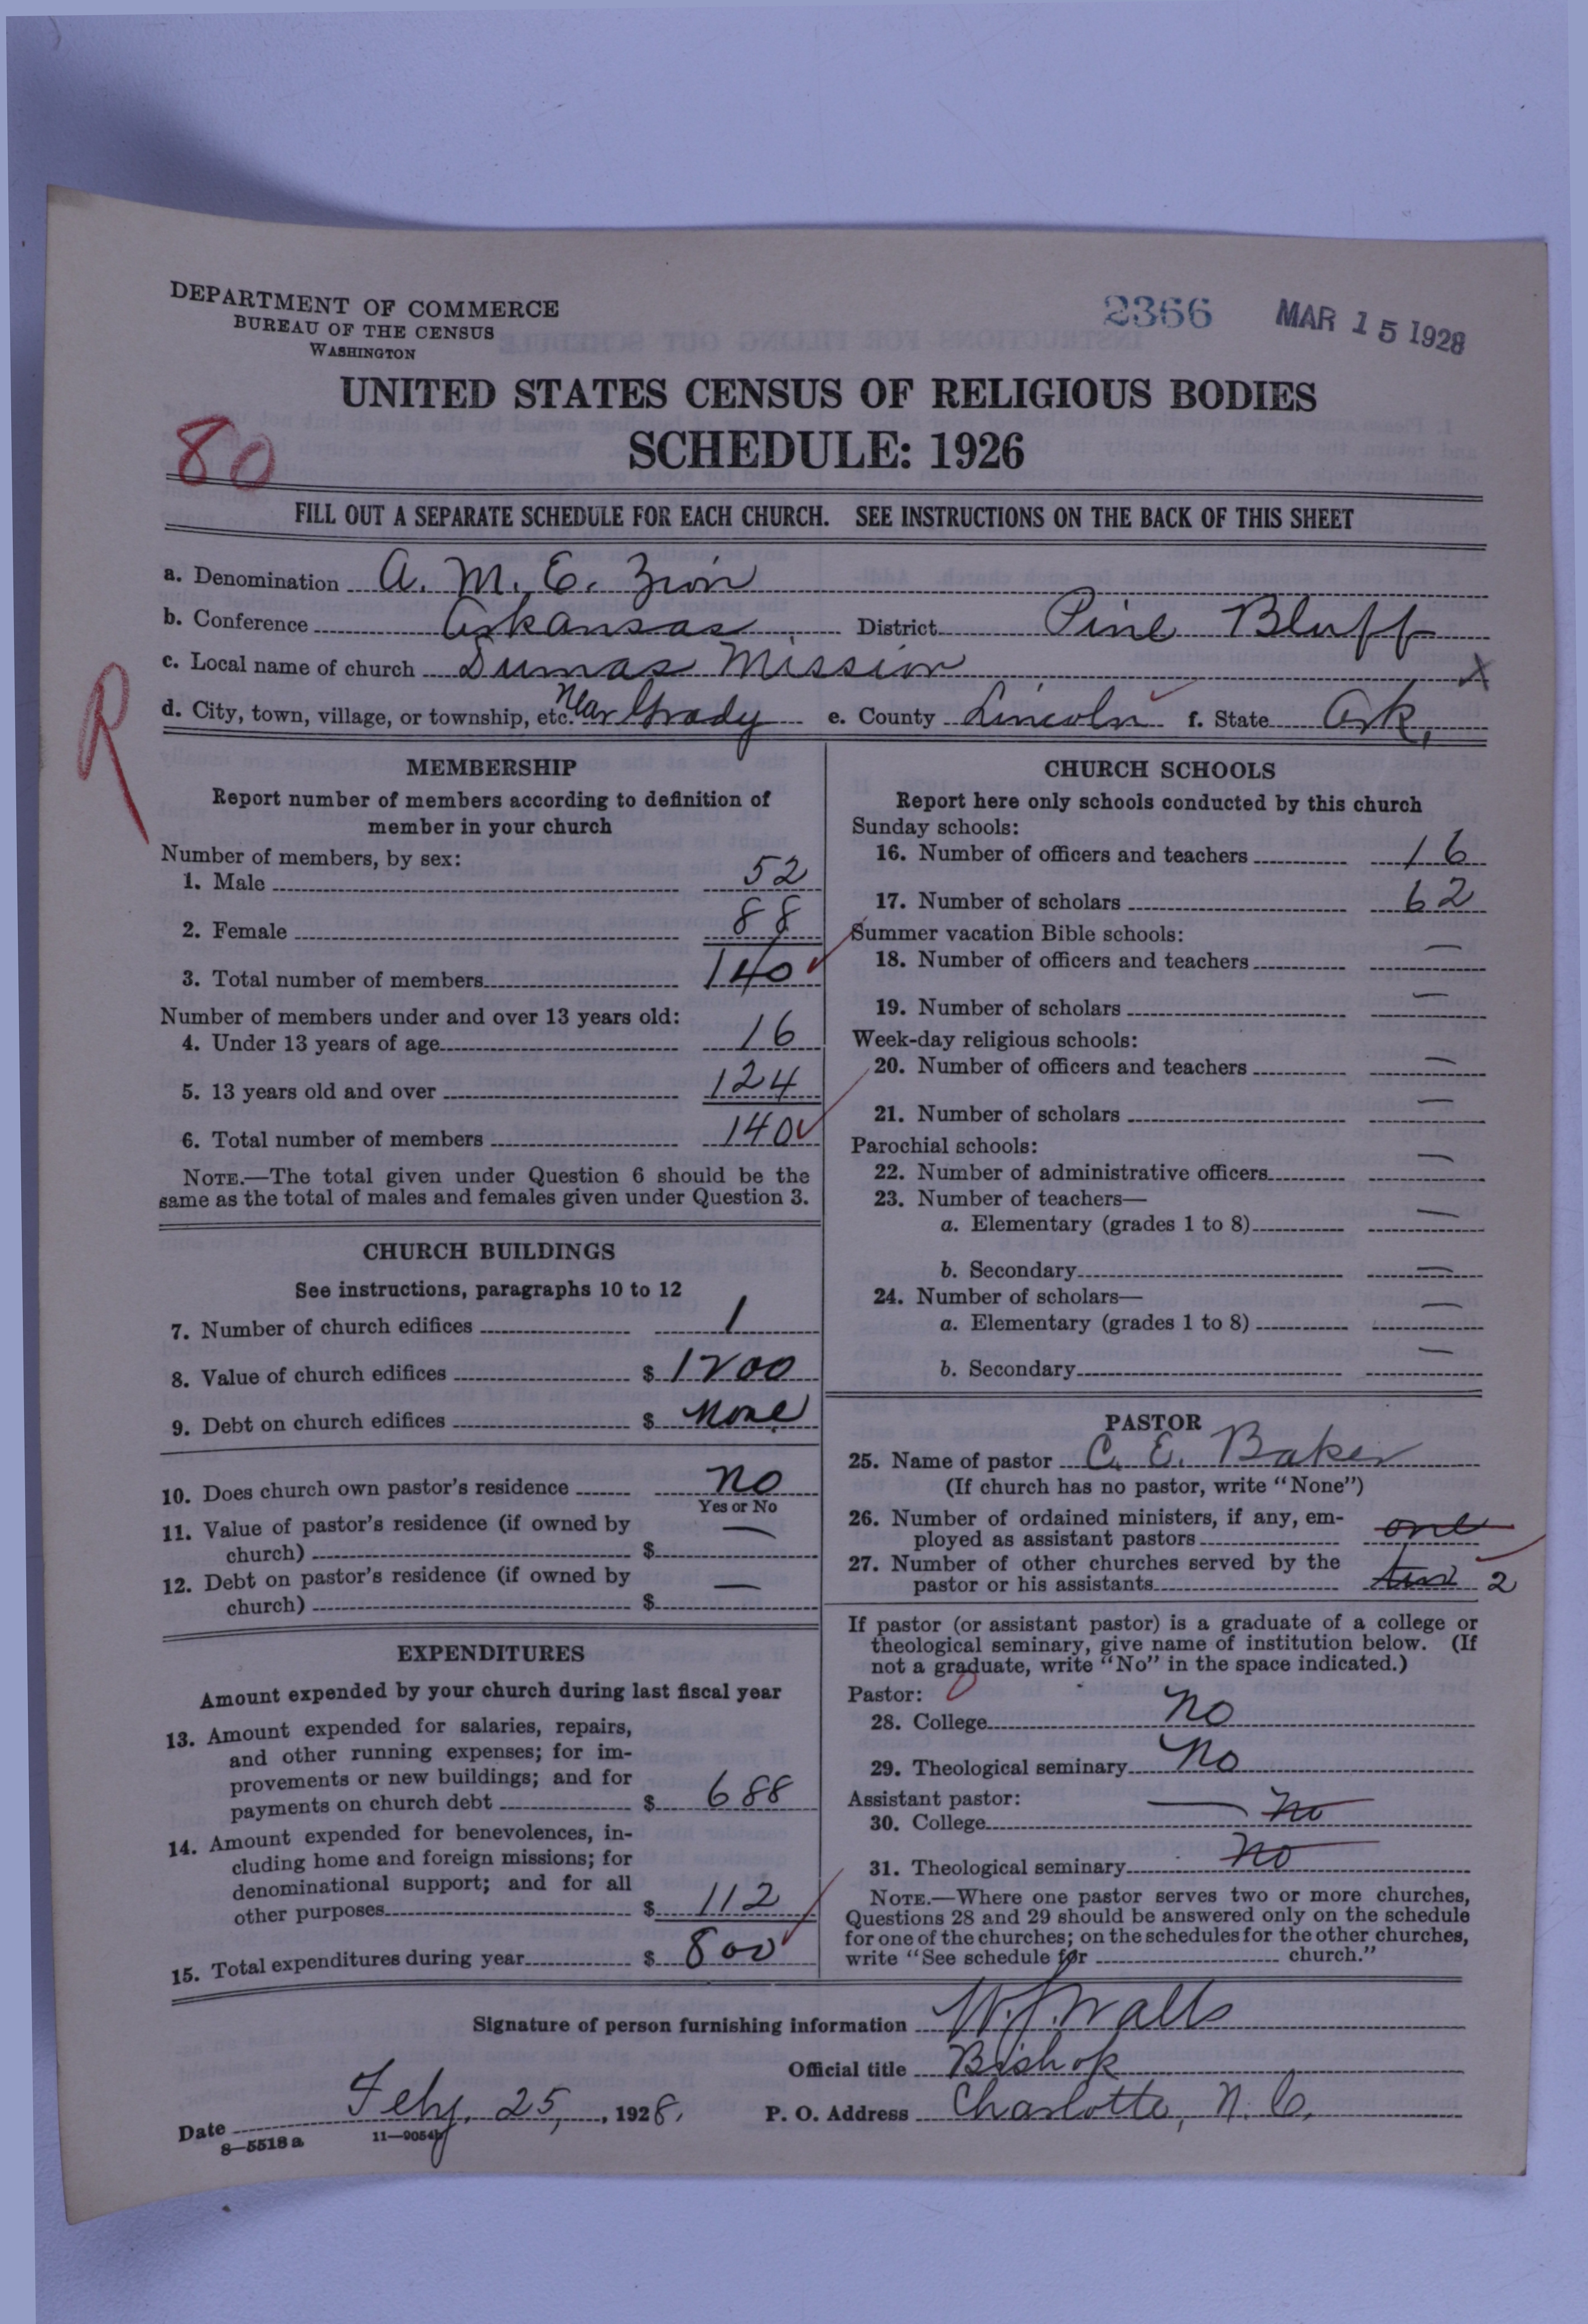 DEPARTMENT OF COMMERCE
BUREAU OF THE CENSUS
WASHINGTON
2366 MAR 15 1928
UNITED STATES CENSUS OF RELIGIOUS BODIES
SCHEDULE: 1926
80
FILL OUT A SEPARATE SCHEDULE FOR EACH CHURCH. SEE INSTRUCTIONS ON THE BACK OF THIS SHEET
a. Denomination A. M. E. Zion
b. Conference Arkansas District Pine Bluff
c. Local name of church Dumas Mission X
d. City, town, village, or township, etc. Near Grady e. County Lincoln f. State Ark.
R
MEMBERSHIP
Report number of members according to definition of
member in your church
Number of members, by sex:
1. Male 52
2. Female 88
3. Total number of members 140
Number of members under and over 13 years old:
4. Under 13 years of age 16
5. 13 years old and over 124
6. Total number of members 140
NOTE.—The total given under Question 6 should be the
same as the total of males and females given under Question 3.
CHURCH BUILDINGS
See instructions, paragraphs 10 to 12
7. Number of church edifices 1
8. Value of church edifices $ 1200
9. Debt on church edifices $ None
10. Does church own pastor's residence No
Yes or No
11. Value of pastor's residence (if owned by
church) $ —
12. Debt on pastor's residence (if owned by
church) $ —
EXPENDITURES
Amount expended by your church during last fiscal year
13. Amount expended for salaries, repairs,
and other running expenses; for im-
provements or new buildings; and for
payments on church debt $ 688
14. Amount expended for benevolences, in-
cluding home and foreign missions; for
denominational support; and for all
other purposes $ 112
15. Total expenditures during year $ 800
CHURCH SCHOOLS
Report here only schools conducted by this church
Sunday schools:
16. Number of officers and teachers 16
17. Number of scholars 62
Summer vacation Bible schools:
18. Number of officers and teachers —
19. Number of scholars —
Week-day religious schools:
20. Number of officers and teachers —
21. Number of scholars —
Parochial schools:
22. Number of administrative officers —
23. Number of teachers—
a. Elementary (grades 1 to 8) —
b. Secondary —
24. Number of scholars—
a. Elementary (grades 1 to 8) —
b. Secondary —
PASTOR
25. Name of pastor C. E. Baker
(If church has no pastor, write "None")
26. Number of ordained ministers, if any, em-
ployed as assistant pastors one
27. Number of other churches served by the
pastor or his assistants two 2
If pastor (or assistant pastor) is a graduate of a college or
theological seminary, give name of institution below. (If
not a graduate, write "No" in the space indicated.)
Pastor: 0
28. College No
29. Theological seminary No
Assistant pastor:
30. College — No
31. Theological seminary No
NOTE.—Where one pastor serves two or more churches,
Questions 28 and 29 should be answered only on the schedule
for one of the churches; on the schedules for the other churches,
write "See schedule for church."
Signature of person furnishing information W. J. Walls
Official title Bishop
Date Feby. 25, 1928. P. O. Address Charlotte, N. C.
8—5518 a 11—9054b